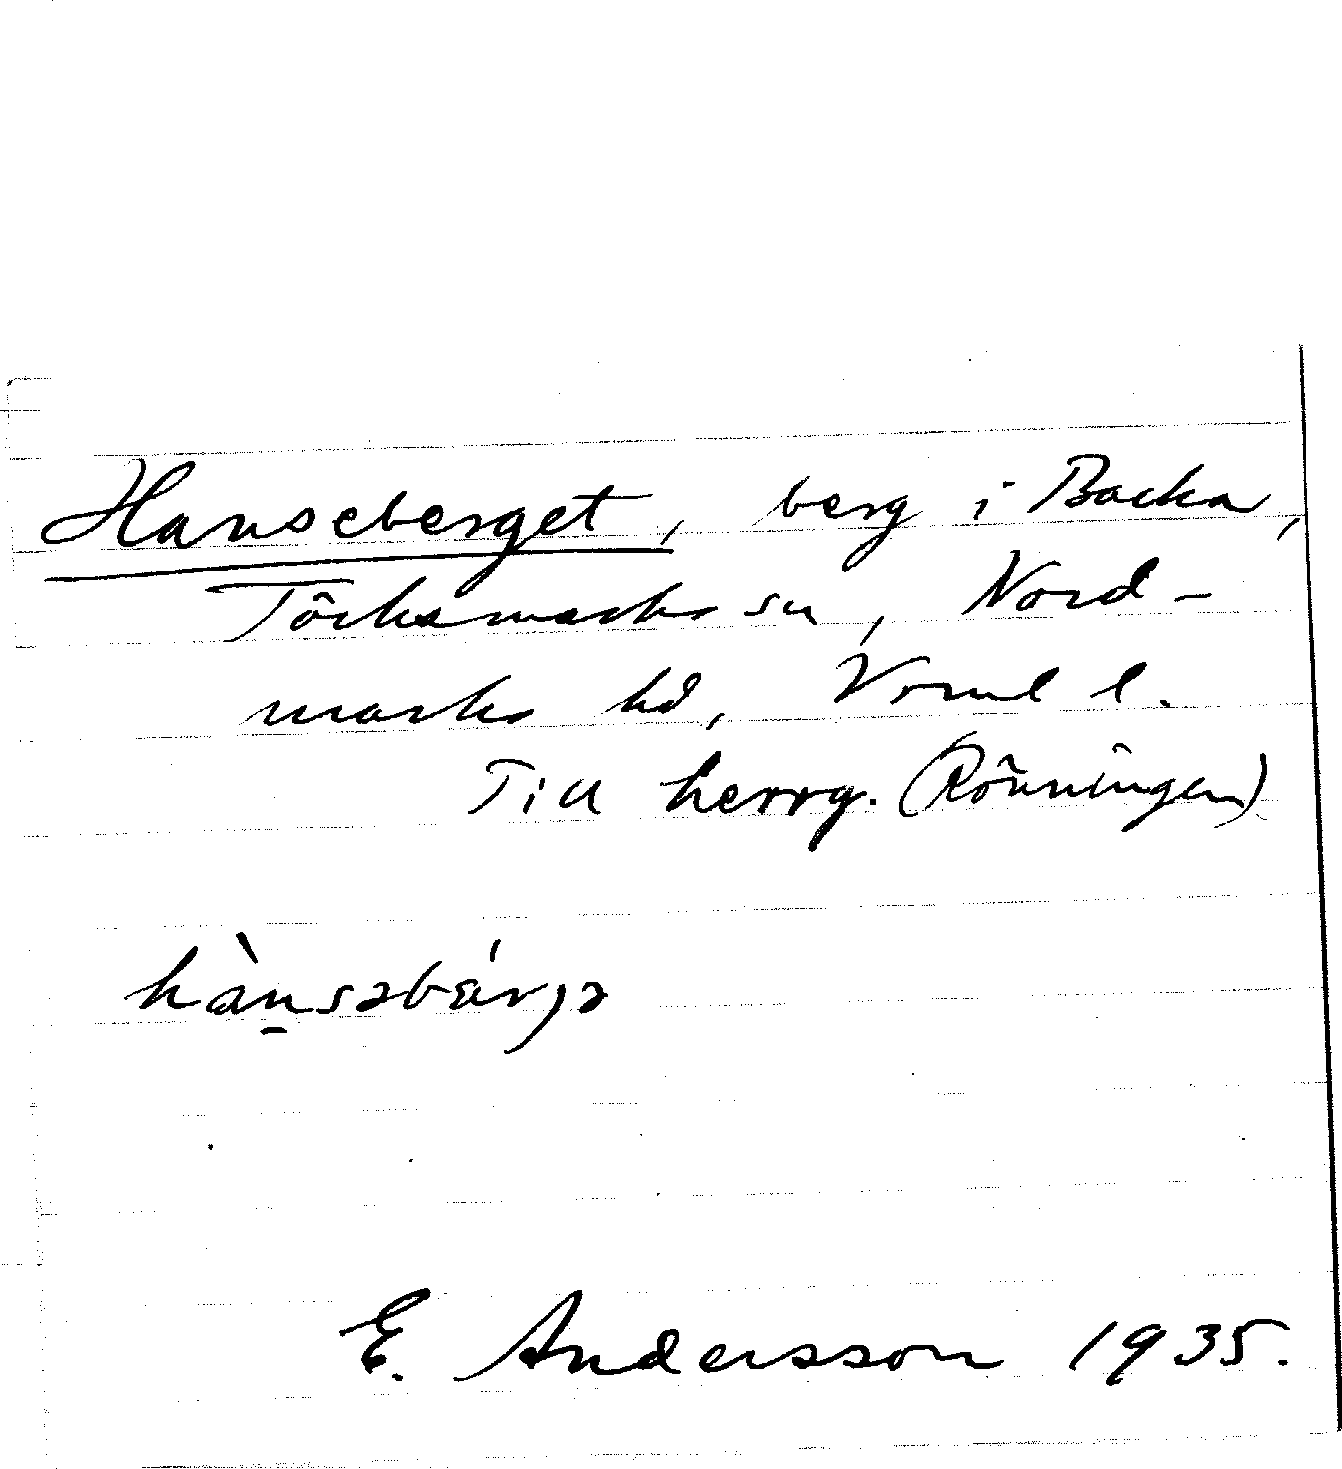 Hanseberget, berg i Backa,
Töcksmarks sn, Nord-
marks hd, Vrml l.
Till herrg. (Rönningen)
hàn̠səbárjə
E. Andersson 1935.